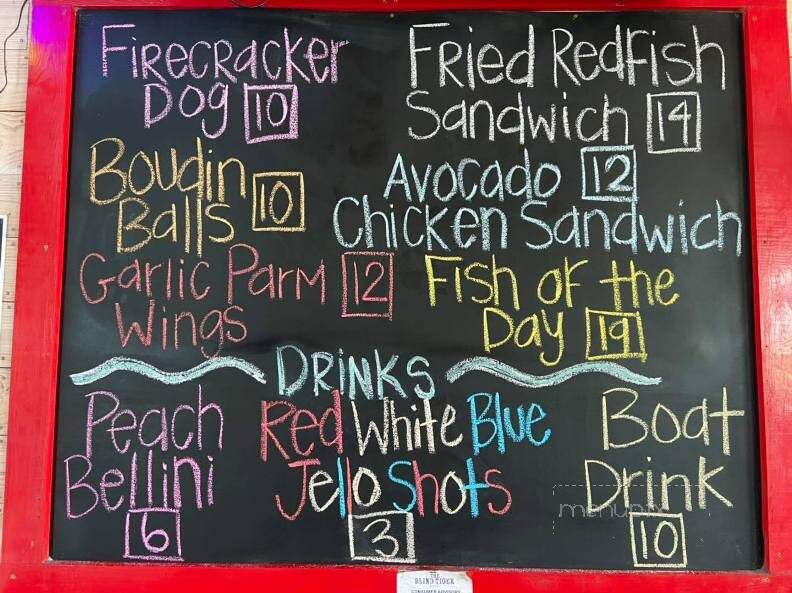 Firecracker
Dog 10
Fried Redfish
Sandwich 14
Boudin
Balls 10
Avocado 12
Chicken Sandwich
Garlic Parm 12
Wings
Fish of the
Day 19
Drinks
Peach
Bellini
6
Red White Blue
Jello Shots
3
Boat
Drink
10
menupix
THE
BLIND TIGER
CONSUMER ADVISORY